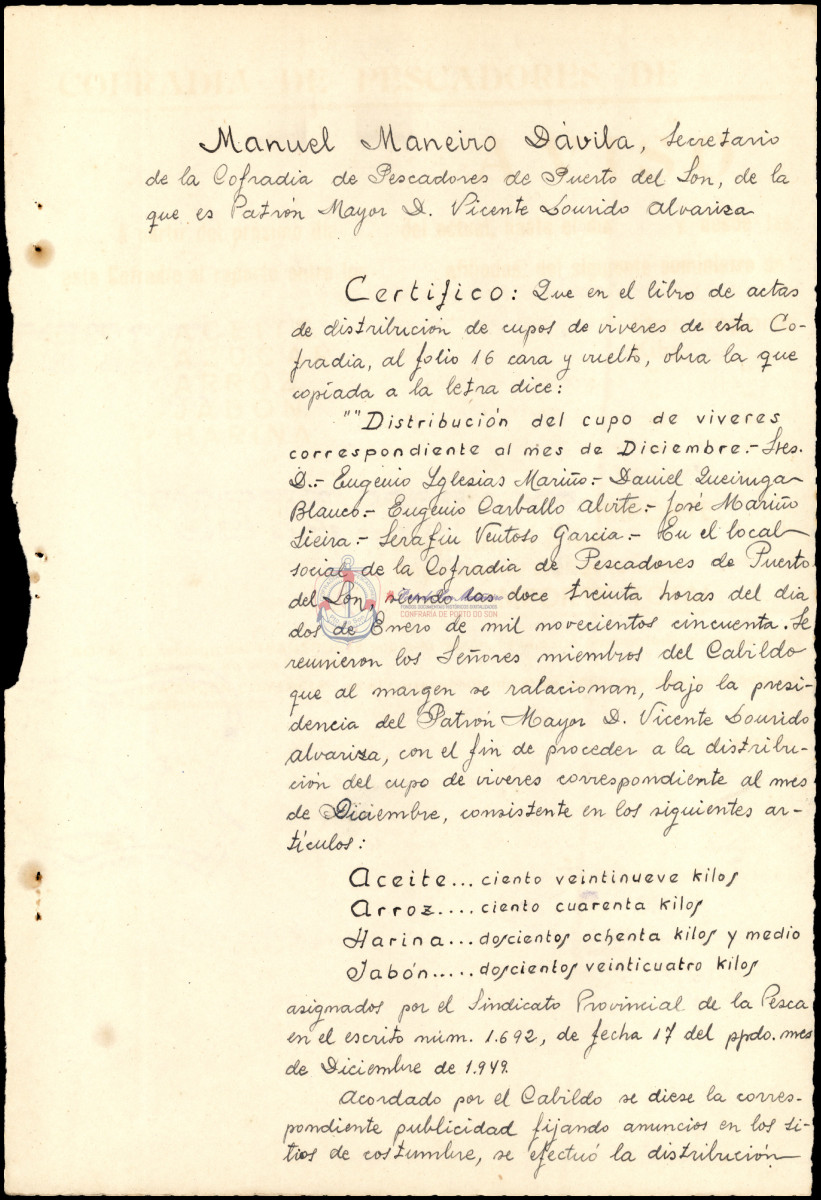 Manuel Maneiro Dávila, Secretario
de la Cofradia de Pescadores de Puerto del Son, de la
que es Patrón Mayor D. Vicente Lourido Alvariza
Certifico: Que en el libro de actas
de distribución de cupos de viveres de esta Co-
fradia, al folio 16 cara y vuelto, obra la que
copiada a la letra dice:
""Distribución del cupo de viveres
correspondiente al mes de Diciembre.- Sres.
D.- Eugenio Yglesias Mariño.- Daniel Queiruga
Blanco.- Eugenio Carballo Alvite.- José Mariño
Sieira.- Serafin Ventoso Garcia.- En el local
social de la Cofradia de Pescadores de Puerto
del Son, siendo las doce treinta horas del dia
FONDOS DOCUMENTAIS HISTÓRICOS DIXITALIZADOS
CONFRARÍA DE PORTO DO SON
dos de Enero de mil novecientos cincuenta. Se
reunieron los Señores miembros del Cabildo
que al margen se ralacionan, bajo la presi-
dencia del Patrón Mayor D. Vicente Lourido
Alvariza, con el fin de proceder a la distribu-
ción del cupo de viveres correspondiente al mes
de Diciembre, consistente en los siguientes ar-
tículos:
Aceite... ciento veintinueve kilos
Arroz.... ciento cuarenta kilos
Harina... doscientos ochenta kilos y medio
Jabón..... doscientos veinticuatro kilos
asignados por el Sindicato Provincial de la Pesca
en el escrito núm. 1.692, de fecha 17 del ppdo. mes
de Diciembre de 1.949.
Acordado por el Cabildo se diese la corres-
pondiente publicidad fijando anuncios en los si-
tios de costumbre, se efectuó la distribución